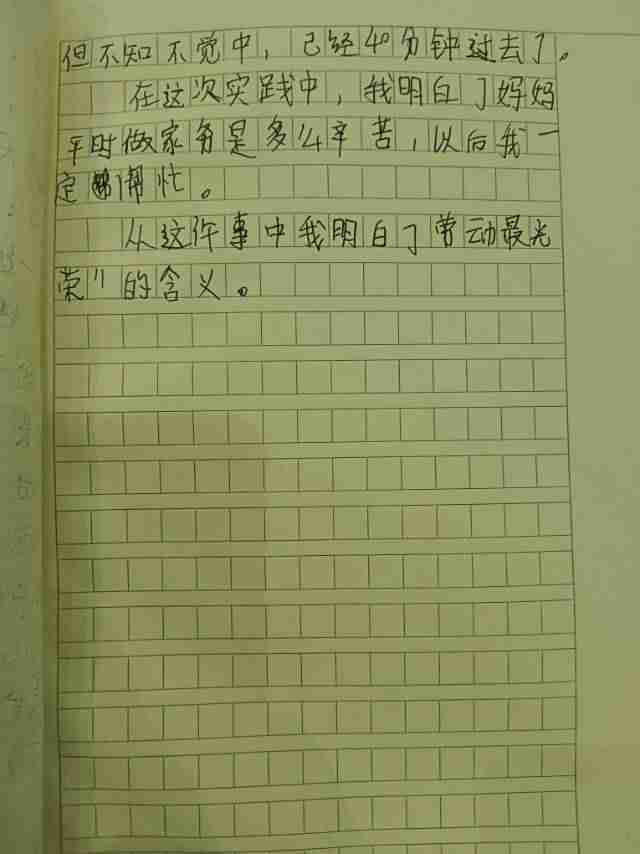 但不知不觉中，已经40分钟过去了。
在这次实践中，我明白了妈妈
平时做家务是多么辛苦，以后我一
定帮忙。
从这件事中我明白了劳动最光
荣”的含义。